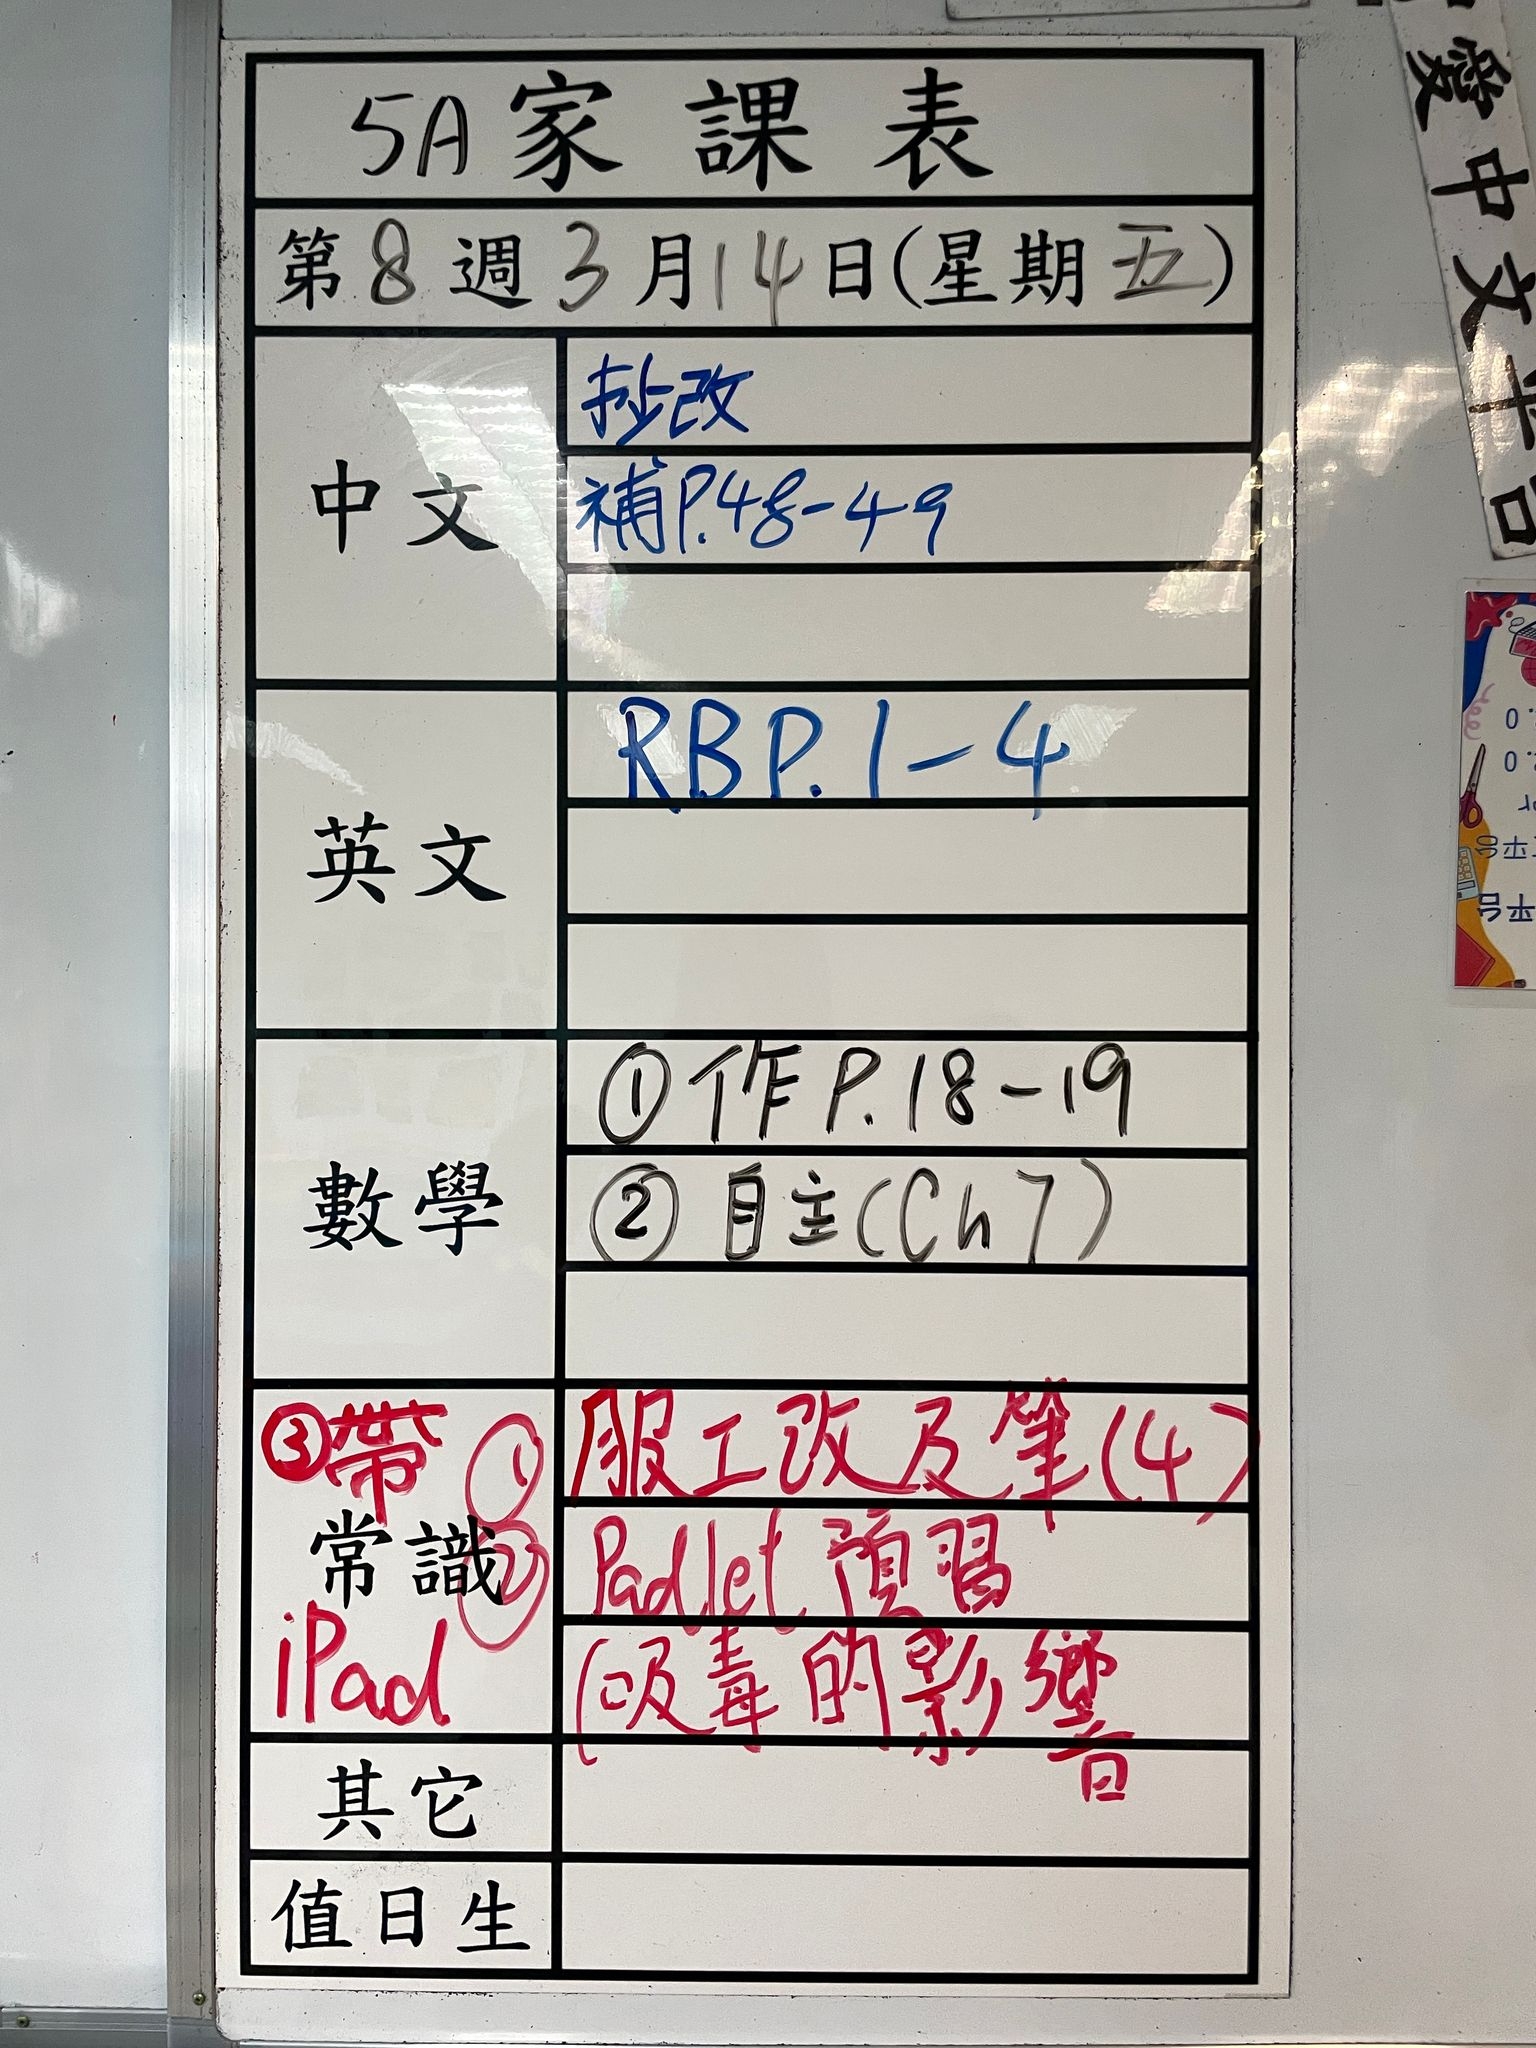 5A家課表
第8週3月14日(星期五)
中文
抄改
補P.48-49
英文
RB P.1-4
數學
①作P.18-19
②自主(Ch7)
常識
①服工改及筆(4)
②Padlet預習
(吸毒的影響
③帶
iPad
其它
值日生
發中文平台